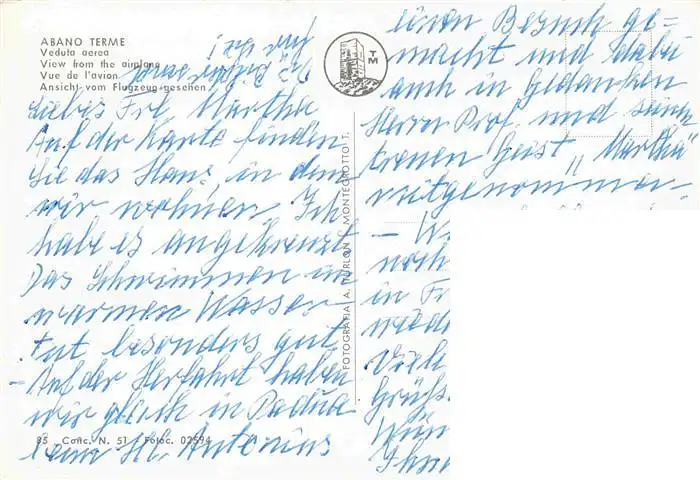 ABANO TERME
Veduta aerea
View from the airplane
Vue de l'avion
Ansicht vom Flugzeug gesehen
TM
Liebes Frl. Martha
Auf der Karte finden
Sie das Haus, in dem
wir wohnen. Ich
habe es angekreuzt
Das Schwimmen im
warmen Wasser
tut besonders gut
- Auf der Herfahrt haben
wir gleich in Padua
beim Hl. Antonius
85 Conc. N. 51 Fotoc. 02594
FOTOGRAFIA A. TURLON MONTEGROTTO T.
einen Besuch ge-
macht und dabei
auch in Gedanken
Herrn Prof. und seinen
treuen Geist „Martha"
mitgenommen-
- W
noch
in Fr
wied
Viel
Grüß
Wün
Ihn